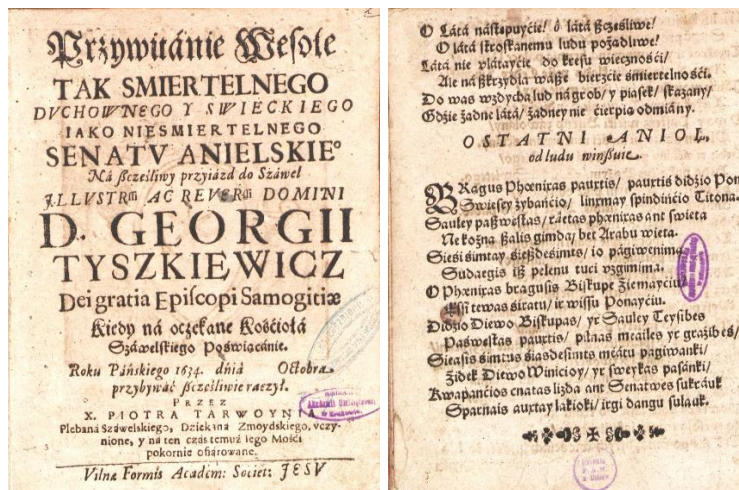 Przywitánie Wesołe
TAK SMIERTELNEGO
DVCHOWNEGO Y SWIECKIEGO
IAKO NIESMIERTELNEGO
SENATV ANIELSKIEº
Ná szcześliwy przyiázd do Száwel
ILLVSTRmi AC REVERmi DOMINI
D. GEORGII
TYSZKIEWICZ
Dei gratia Episcopi Samogitiæ
Kiedy ná oczekáne Kośćiołá
Száwelskiego Poświącánie.
Roku Páńskiego 1634. dniá Octobra
przybywáć szcześliwie raczył.
PRZEZ
X. PIOTRA TARWOYNIA
Plebaná Száwelskiego, Dziekaná Zmoydskiego, vczy-
nione, y ná ten czás temuż iego Mośći
pokornie ofiárowane.
Vilnæ Formis Academ: Societ: JESV
O Látá nástępuyćie/ ô látá szcześliwe/
O látá stroskánemu ludu pożądliwe!
Látá nie vlátayćie do kresu wiecznośći/
Ale ná skrzydłá wásze bierzćie śmiertelnośći.
Do was wzdycha lud ná grob/ y piasek/ skazány/
Gdźie żadne látá/ żadney nie ćierpią odmiány.
OSTATNI ANIOŁ,
od ludu winszuie.
BRagus Phœnixas paurtis/ paurtis didzio Pon
Swiesey żybanćio/ linxmay spindinćio Titona.
Sauley paszwestas/ ráetas phœnixas ant swieta
Ne kożna szalis gimdą/ bet Arabu wieta.
Siesi simtay sieszdesimts/ io págiwenimą
Sudaegis isz pelenu tuci vzgimima.
O Phœnixas bragusis Biskupe Ziemayćiu/
Essi tewas siratu/ ir wissu Ponayćiu.
Didzio Diewo Biskupas/ yr Sauley Teysibes
Paswestas paurtis/ pilnas meailes yr grażibes/
Sieasis simtus siasdesimts meátu págiwanki/
Żidek Diewo Winicioy/ yr sweykas pasánki/
Kwapanćios cnatas lizda ant Senatwes sukráuk
Sparnais auxtay lakioki/ irgi dangu sulauk.